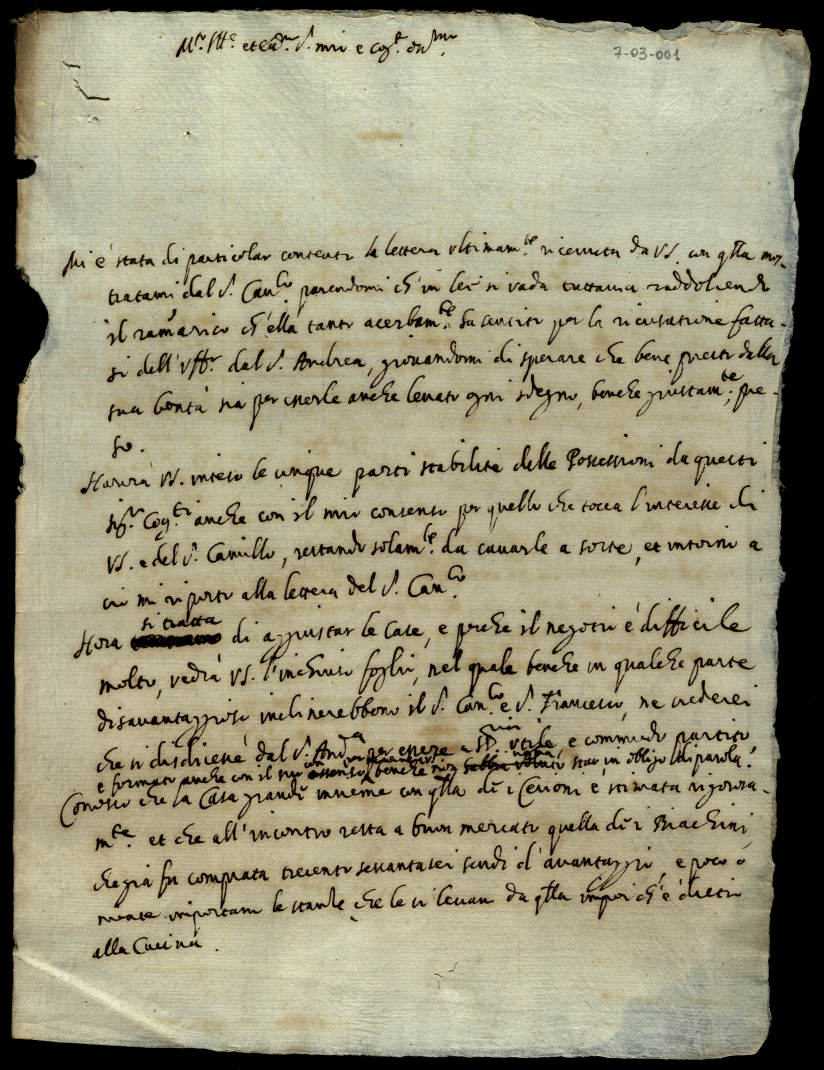 7-03-001
M.to Ill.e et ecc.te S. mio e Cog.to oss.mo
Mi è stata di particolar contento la lettera ultimam.te ricevuta da VS. con q.lla mos-
tratami dal S. Can.co parendomi ch'in lei si vada tuttavia raddolcendo
il ramarico ch'ella tanto acerbam.te ha sentito per la ricusatione fatta-
si dell'uff.o dal S. Andrea, giovandomi di sperare che bene presto dalla
sua bontà sia per esserle anche levato ogni sdegno, benche giustam.te pre-
so.
Haverà VS. inteso le cinque parti stabilite delle Possessioni da questi
Sig.ri Cog.ti anche con il mio consenso per quello che tocca l'interesse di
VS. e del S. Camillo, restando solam.te da cavarle a sorte, et intorno a
ciò mi riporto alla lettera del S. Can.co
Hora si tratta di aggiustar le Case, e perche il negotio è difficile
molto, vedrà VS. l'inchiuso foglio, nel quale benche in qualche parte
disavantaggioso inclinerebbono il S. Can.co e S. Francesco, ne crederei
che si disdicesse dal S. And.a per essere a noi utile, e commodo partito,
e formato anche con il suo benche non star in obligo di parola.
Conosco che la Casa grande insieme con q.lla de i Cerioni è stimata rigorosa-
m.te et che all'incontro resta a buon mercato quella de i Biachini,
che già fu comprata trecento sessantasei scudi d'avantaggio, e poco o
niente importano le stanze che le si levan da q.lla ch'è dietro
alla Cucina.